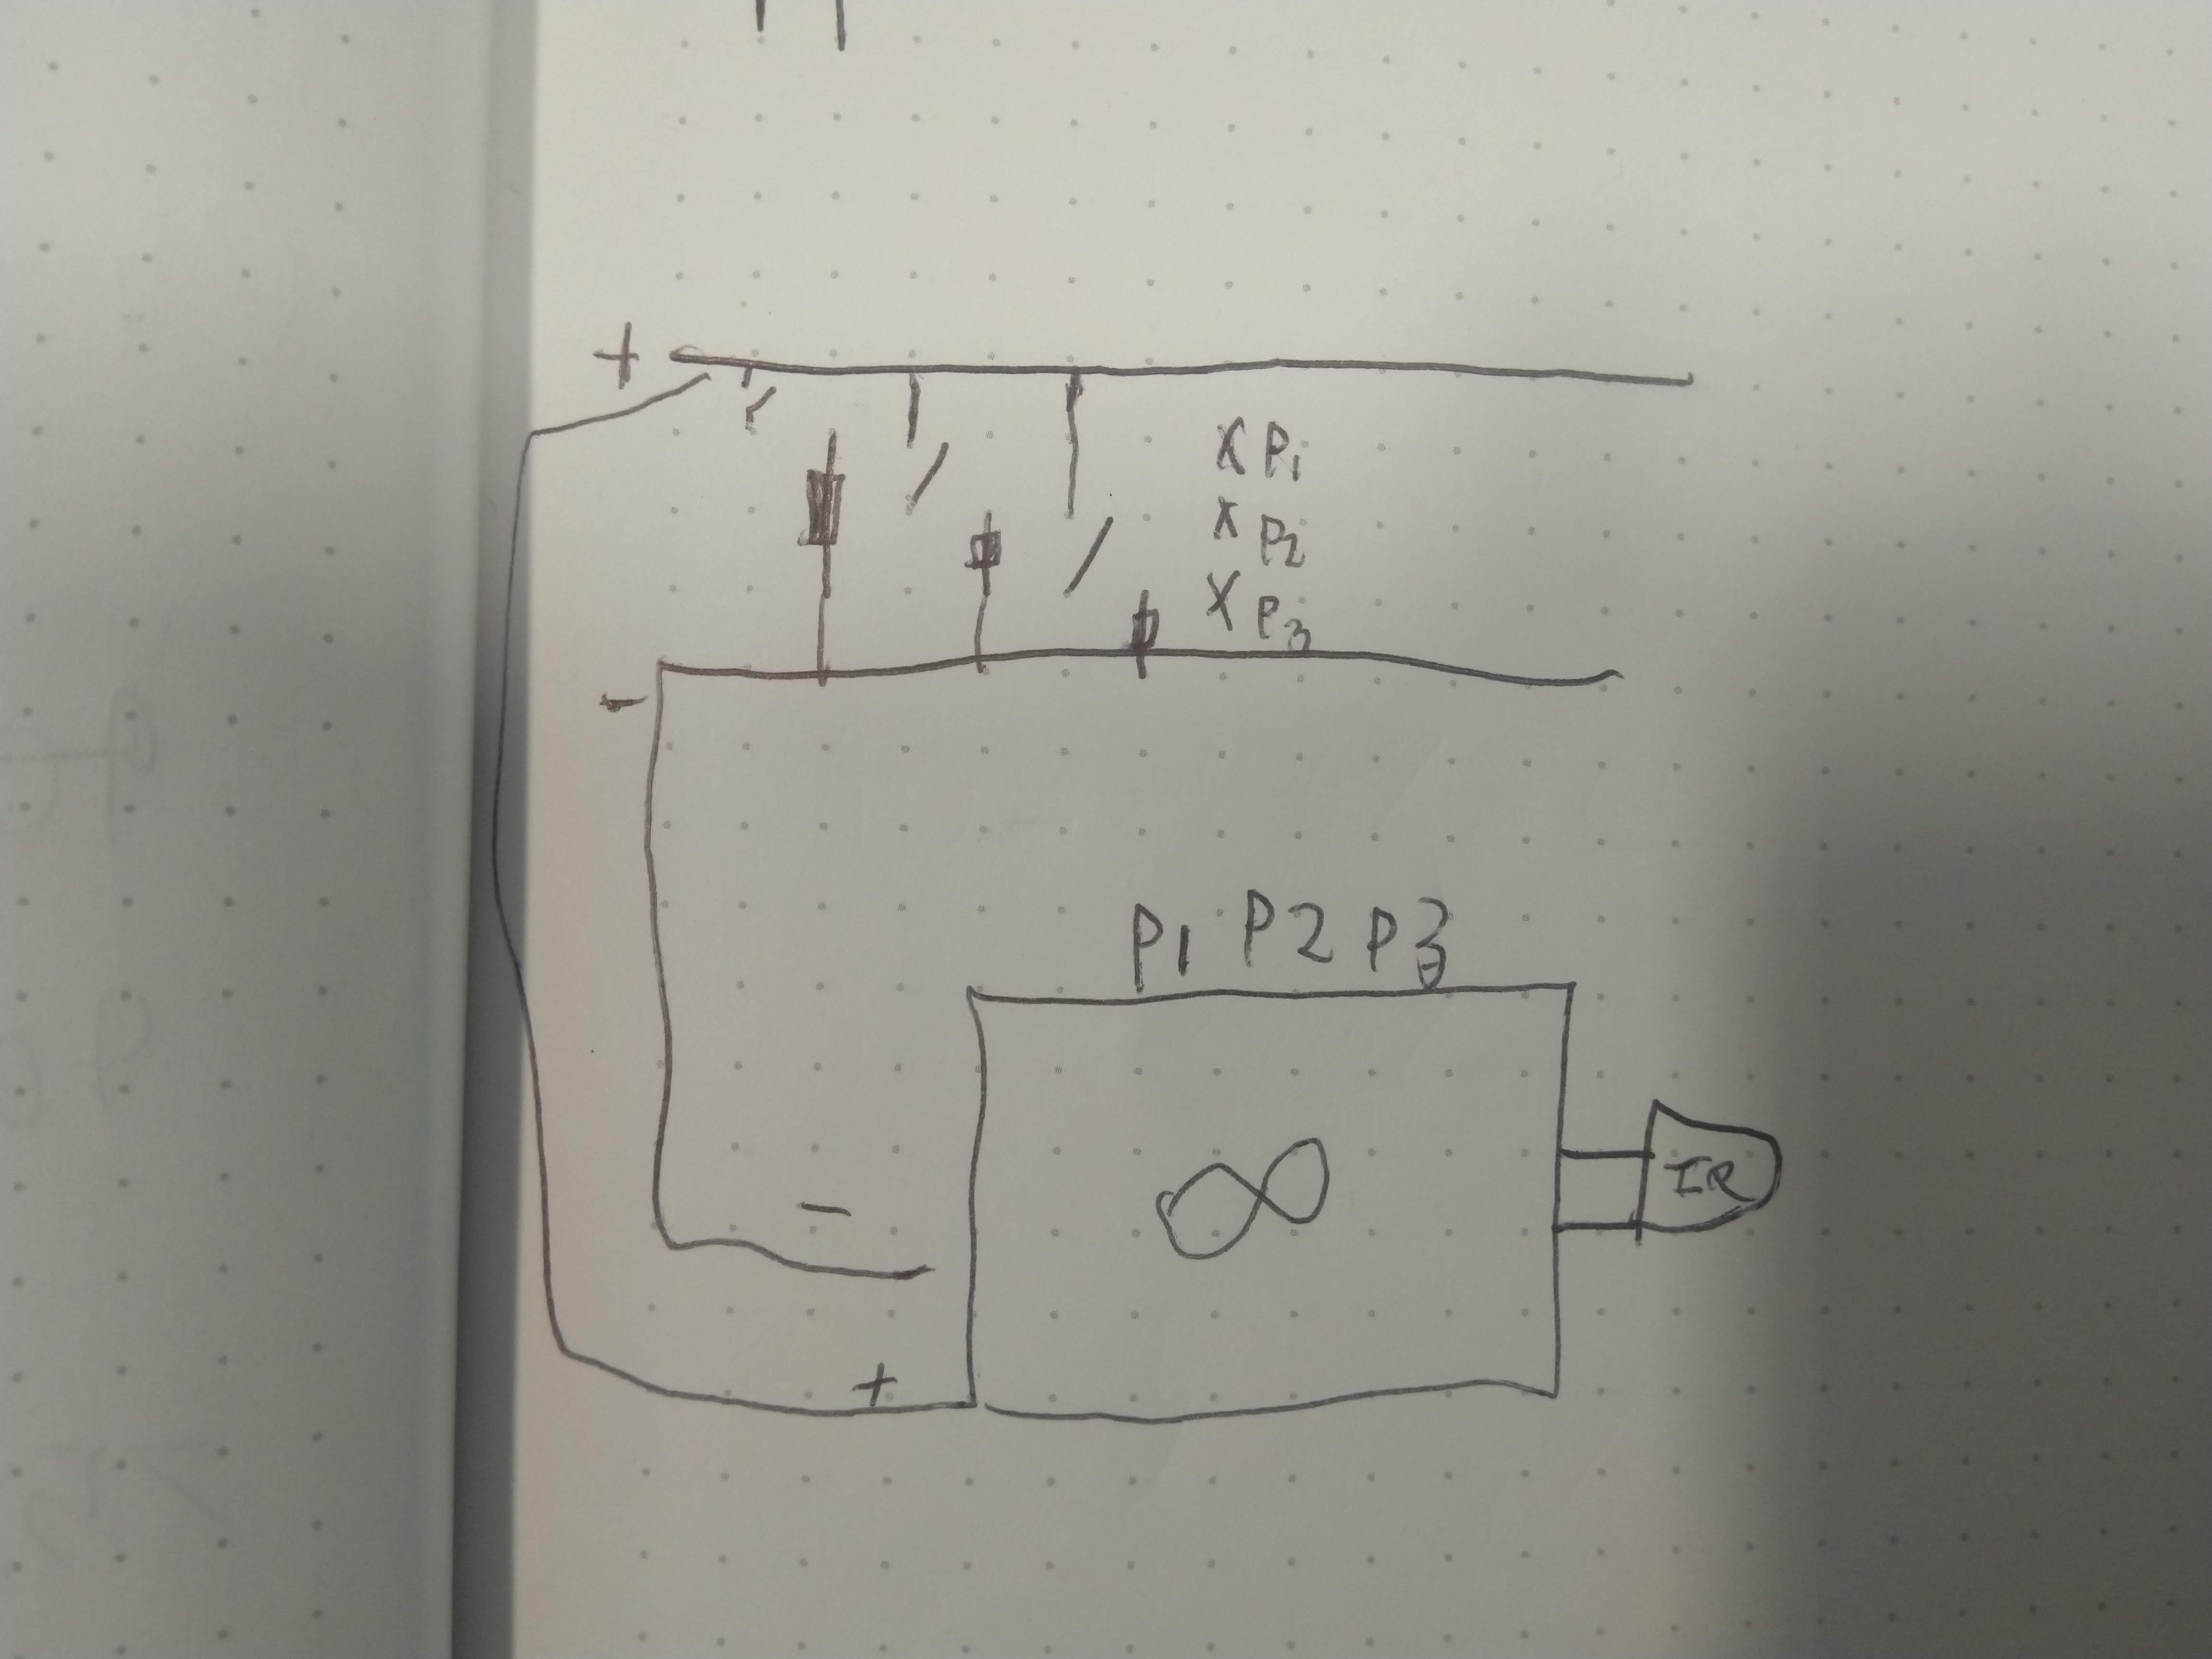 +
X P1
X P2
X P3
-
P1 P2 P3
∞
IR
-
+